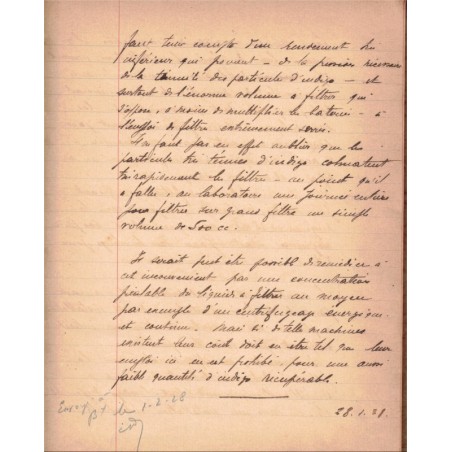 faut tenir compte d'un rendement très
inférieur qui provient — de la pression nécessaire
de la ténuité des particules d'indigo — et
surtout de l'énorme volume à filtrer qui
s'oppose, à moins de multiplier les batteries — à
l'emploi de filtre extrêmement serré.
Il ne faut pas en effet oublier que les
particules très tenues d'indigo colmatent
très rapidement le filtre — au point qu'il
a fallu, au laboratoire une journée entière
pour filtrer sur grand filtre un simple
volume de 500 cc.
Il serait peut être possible de remédier à
cet inconvénient par une concentration
préalable du liquide à filtrer au moyen
par exemple d'un centrifugeage énergique
et continu. Mais si de telles machines
existent leur coût doit en être tel que leur
emploi ici en est prohibé pour une aussi
faible quantité d'indigo récupérable.
28.1.28.
de 1-2-28